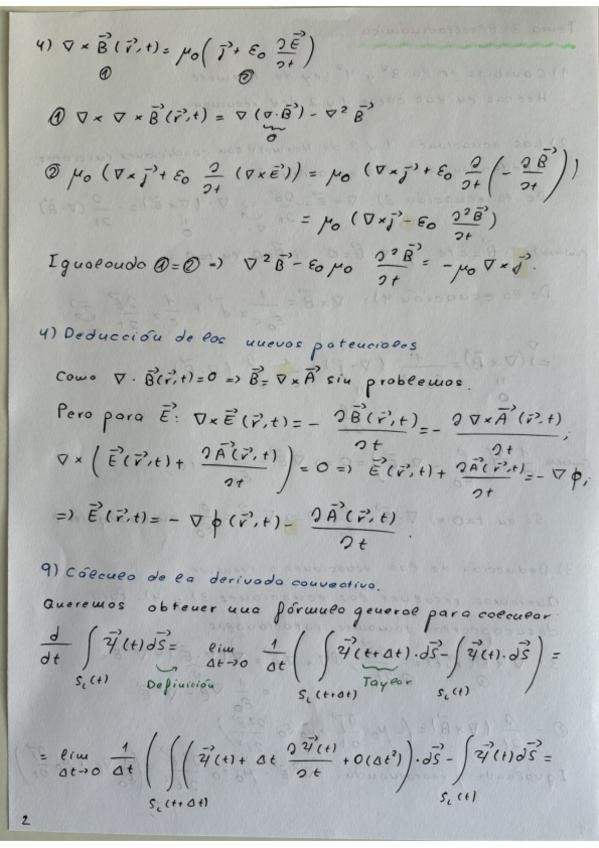 4) ∇ × B⃗(r⃗,t) = μ₀(j⃗ + ε₀ ∂E⃗/∂t)
① ②
① ∇ × ∇ × B⃗(r⃗,t) = ∇(∇·B⃗) - ∇²B⃗
0
② μ₀ (∇×j⃗ + ε₀ ∂/∂t (∇×E⃗)) = μ₀ (∇×j⃗ + ε₀ ∂/∂t (- ∂B⃗/∂t))
= μ₀ (∇×j⃗ - ε₀ ∂²B⃗/∂t²)
Igualando ①=② => ∇²B⃗ - ε₀ μ₀ ∂²B⃗/∂t² = -μ₀ ∇×j⃗.
4) Deducción de los nuevos potenciales
Como ∇·B⃗(r⃗,t)=0 => B⃗ = ∇×A⃗ sin problemas.
Pero para E⃗: ∇×E⃗(r⃗,t) = - ∂B⃗(r⃗,t)/∂t = - ∂∇×A⃗(r⃗,t)/∂t;
∇×(E⃗(r⃗,t) + ∂A⃗(r⃗,t)/∂t) = 0 => E⃗(r⃗,t) + ∂A⃗(r⃗,t)/∂t = -∇ϕ;
=> E⃗(r⃗,t) = -∇ϕ(r⃗,t) - ∂A⃗(r⃗,t)/∂t.
9) Cálculo de la derivada convectiva.
Queremos obtener una fórmula general para calcular:
d/dt ∫ Ψ⃗(t)dS⃗ = lim Δt→0 1/Δt (∫ Ψ⃗(t+Δt)·dS⃗ - ∫ Ψ⃗(t)·dS⃗) =
S_L(t) Definición S_L(t+Δt) Taylor S_L(t)
= lim Δt→0 1/Δt (∫(Ψ⃗(t) + Δt ∂Ψ⃗(t)/∂t + O(Δt²))·dS⃗ - ∫Ψ⃗(t)dS⃗ =
S_L(t+Δt) S_L(t)
2